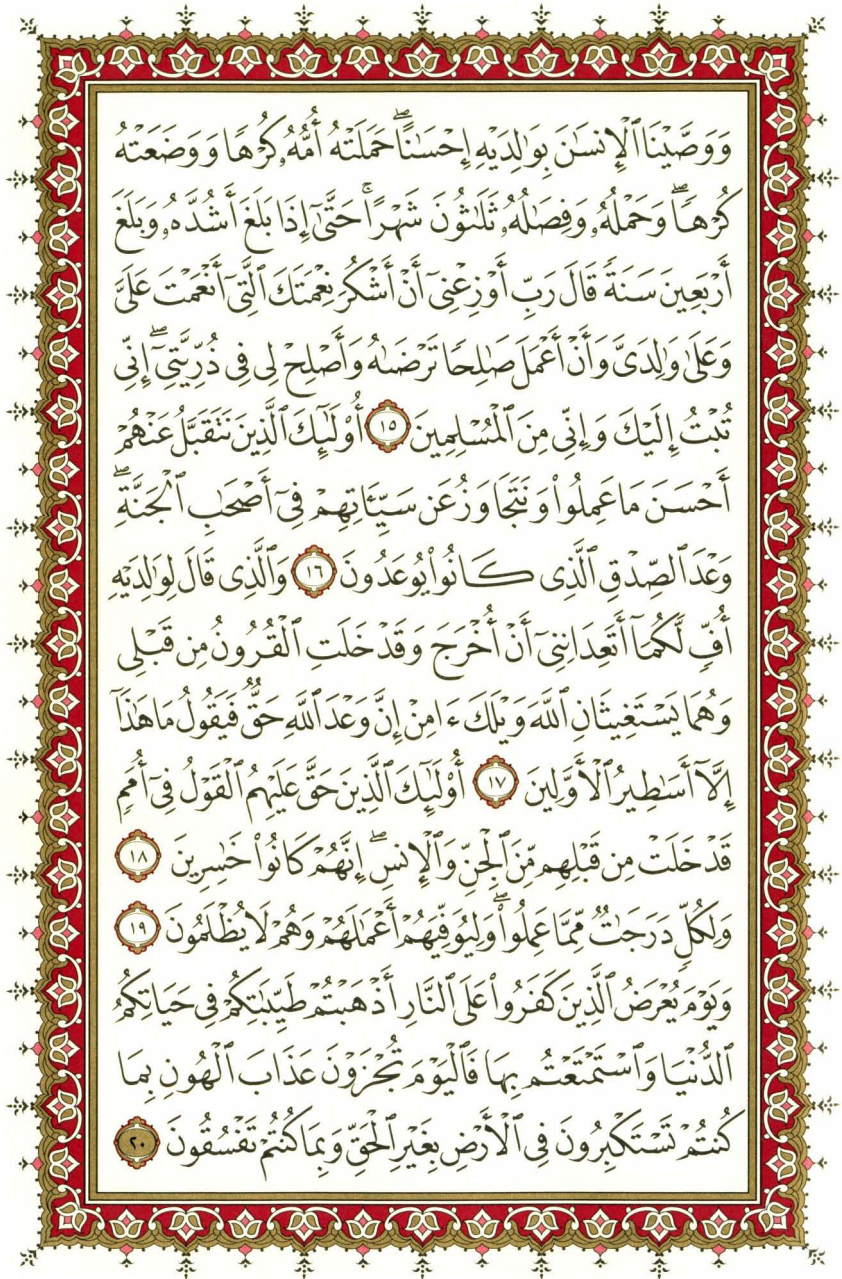 وَوَصَّيْنَا ٱلْإِنسَٰنَ بِوَٰلِدَيْهِ إِحْسَٰنًاۖ حَمَلَتْهُ أُمُّهُۥ كُرْهًا وَوَضَعَتْهُ
كُرْهًاۖ وَحَمْلُهُۥ وَفِصَٰلُهُۥ ثَلَٰثُونَ شَهْرًاۚ حَتَّىٰٓ إِذَا بَلَغَ أَشُدَّهُۥ وَبَلَغَ
أَرْبَعِينَ سَنَةً قَالَ رَبِّ أَوْزِعْنِىٓ أَنْ أَشْكُرَ نِعْمَتَكَ ٱلَّتِىٓ أَنْعَمْتَ عَلَىَّ
وَعَلَىٰ وَٰلِدَىَّ وَأَنْ أَعْمَلَ صَٰلِحًا تَرْضَىٰهُ وَأَصْلِحْ لِى فِى ذُرِّيَّتِىٓۖ إِنِّى
تُبْتُ إِلَيْكَ وَإِنِّى مِنَ ٱلْمُسْلِمِينَ ١٥ أُو۟لَٰٓئِكَ ٱلَّذِينَ نَتَقَبَّلُ عَنْهُمْ
أَحْسَنَ مَا عَمِلُوا۟ وَنَتَجَاوَزُ عَن سَيِّـَٔاتِهِمْ فِىٓ أَصْحَٰبِ ٱلْجَنَّةِۖ
وَعْدَ ٱلصِّدْقِ ٱلَّذِى كَانُوا۟ يُوعَدُونَ ١٦ وَٱلَّذِى قَالَ لِوَٰلِدَيْهِ
أُفٍّ لَّكُمَآ أَتَعِدَانِنِىٓ أَنْ أُخْرَجَ وَقَدْ خَلَتِ ٱلْقُرُونُ مِن قَبْلِى
وَهُمَا يَسْتَغِيثَانِ ٱللَّهَ وَيْلَكَ ءَامِنْ إِنَّ وَعْدَ ٱللَّهِ حَقٌّ فَيَقُولُ مَا هَٰذَآ
إِلَّآ أَسَٰطِيرُ ٱلْأَوَّلِينَ ١٧ أُو۟لَٰٓئِكَ ٱلَّذِينَ حَقَّ عَلَيْهِمُ ٱلْقَوْلُ فِىٓ أُمَمٍ
قَدْ خَلَتْ مِن قَبْلِهِم مِّنَ ٱلْجِنِّ وَٱلْإِنسِۖ إِنَّهُمْ كَانُوا۟ خَٰسِرِينَ ١٨
وَلِكُلٍّ دَرَجَٰتٌ مِّمَّا عَمِلُوا۟ۖ وَلِيُوَفِّيَهُمْ أَعْمَٰلَهُمْ وَهُمْ لَا يُظْلَمُونَ ١٩
وَيَوْمَ يُعْرَضُ ٱلَّذِينَ كَفَرُوا۟ عَلَى ٱلنَّارِ أَذْهَبْتُمْ طَيِّبَٰتِكُمْ فِى حَيَاتِكُمُ
ٱلدُّنْيَا وَٱسْتَمْتَعْتُم بِهَا فَٱلْيَوْمَ تُجْزَوْنَ عَذَابَ ٱلْهُونِ بِمَا
كُنتُمْ تَسْتَكْبِرُونَ فِى ٱلْأَرْضِ بِغَيْرِ ٱلْحَقِّ وَبِمَا كُنتُمْ تَفْسُقُونَ ٢٠